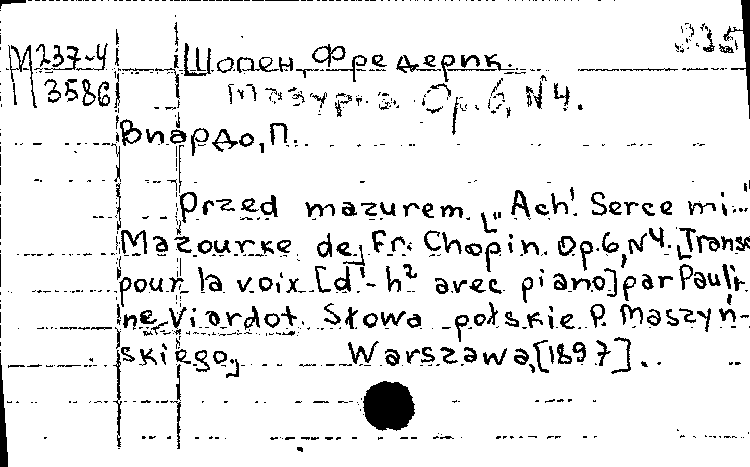 335
М237-4 Шопен, Фредерик.
П3586 Мазурка. Op.6, N4.
Виардо, П.
Przed mazurem. „Ach! Serce mi..."
Mazourke de Fr. Chopin. Op.6, N4. Transc
pour la voix [d¹-h² avec piano] par Pauli-
ne Viardot. Słowa polskie P. Maszyń-
skiego, Warszawa, [1897].